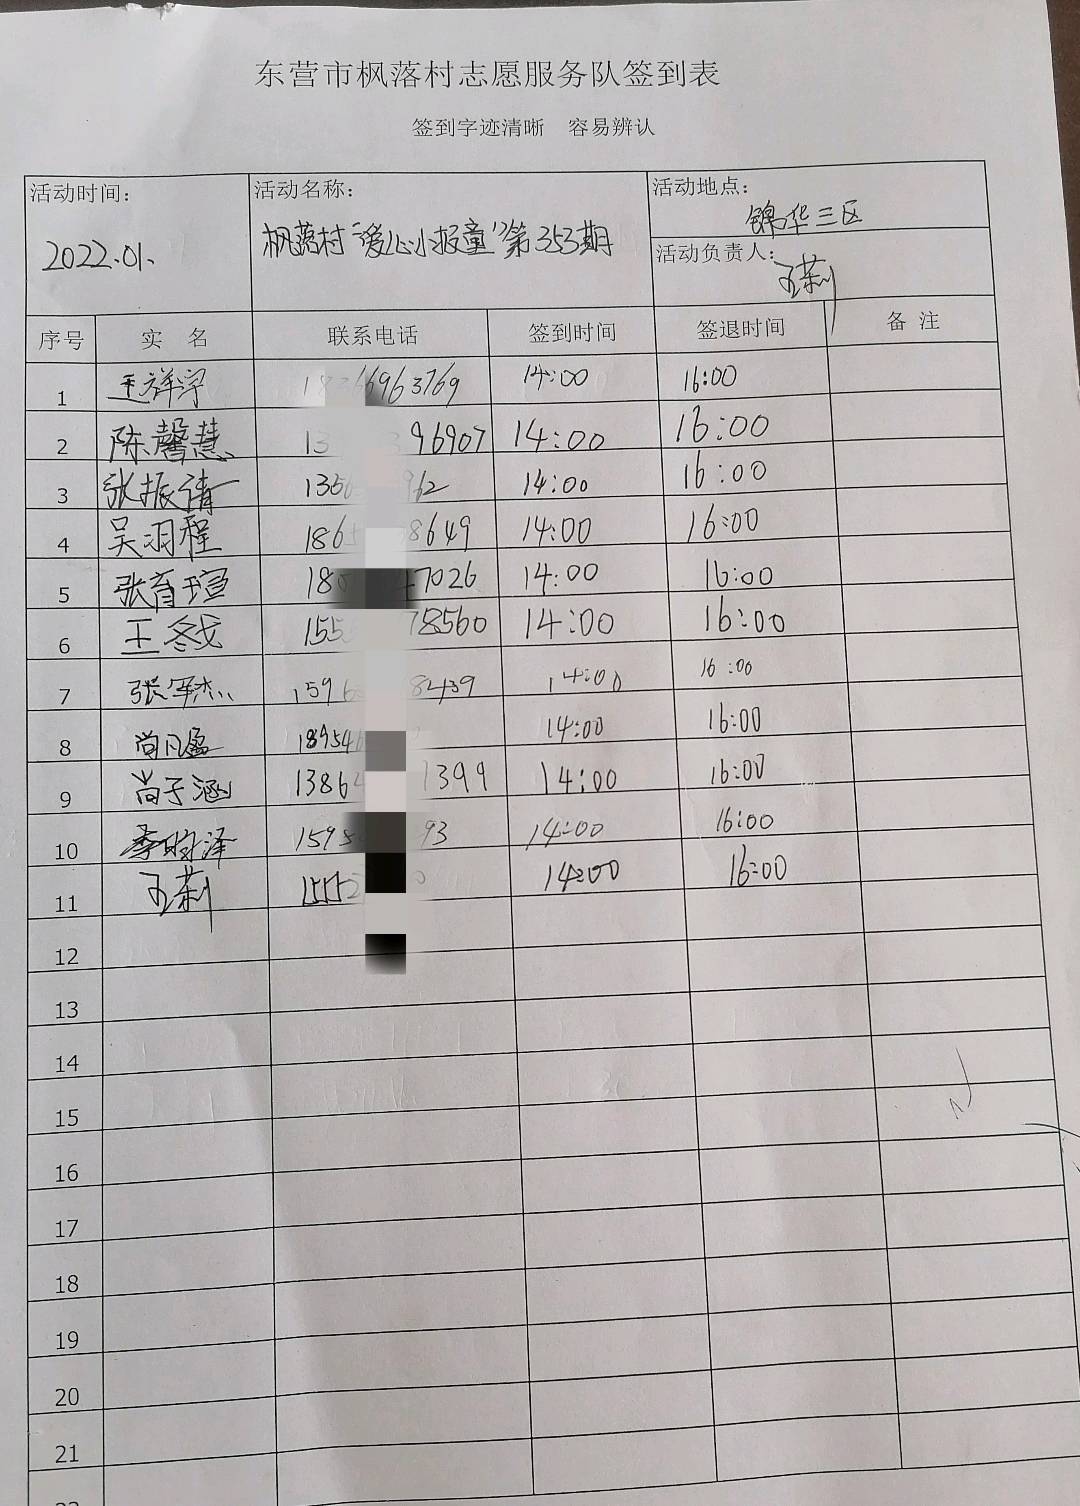 东营市枫落村志愿服务队签到表
签到字迹清晰 容易辨认
活动时间: 活动名称: 活动地点:
2022.01. 枫落村“爱心小报童”第353期 锦华三区
活动负责人: 王莉
序号 实 名 联系电话 签到时间 签退时间 备 注
1 王祥宇 963769 14:00 16:00
2 陈馨慧 13 96907 14:00 16:00
3 张振清 135 962 14:00 16:00
4 吴羽程 185 8649 14:00 16:00
5 张育瑄 18 7026 14:00 16:00
6 王冬戈 155 78560 14:00 16:00
7 张军杰 159 8439 14:00 16:00
8 尚凡盈 18954 14:00 16:00
9 尚子涵 1386 1399 14:00 16:00
10 李昀泽 1595 93 14:00 16:00
11 王莉 14:00 16:00
12
13
14
15
16
17
18
19
20
21